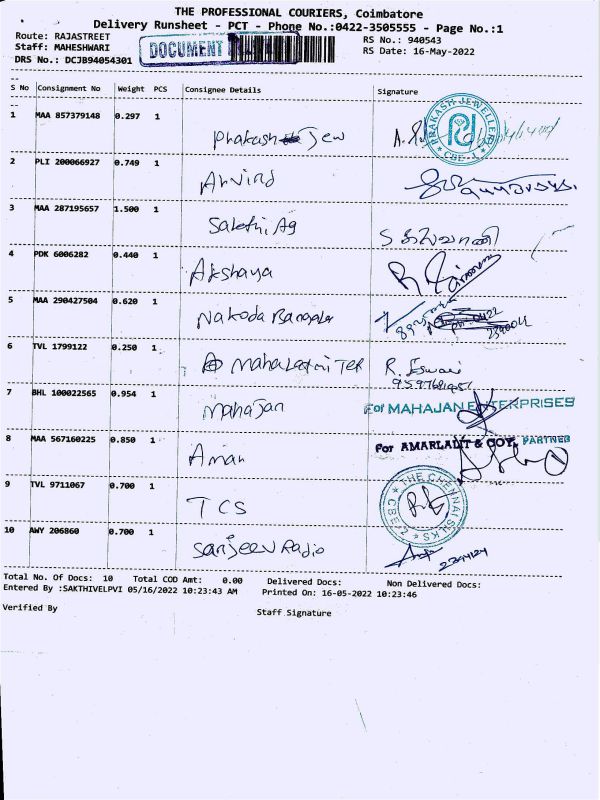 THE PROFESSIONAL COURIERS, Coimbatore
Delivery Runsheet - PCT - Phone No.:0422-3505555 - Page No.:1
Route: RAJASTREET RS No.: 940543
Staff: MAHESHWARI DOCUMENT RS Date: 16-May-2022
DRS No.: DCJB94054301
S No Consignment No Weight PCS Consignee Details Signature
1 MAA 857379148 0.297 1 Prakash Jew PRAKASH JEWELLERY CBE-1
2 PLI 200066927 0.749 1 Arvind
3 MAA 287195657 1.500 1 Sakthi Ag
4 PDK 6006282 0.440 1 Akshaya
5 MAA 290427504 0.620 1 Nakoda
6 TVL 1799122 0.250 1 R. Eswari
7 BHL 100022565 0.954 1 Mahajan For MAHAJAN ENTERPRISES
PARTNER
8 MAA 567160225 0.850 1 Aman For
9 TVL 9711067 0.700 1 TCS THE CHENNAI SILKS CBE
10 AWY 206860 0.700 1 Sanjeev Radio
Total No. Of Docs: 10 Total COD Amt: 0.00 Delivered Docs: Non Delivered Docs:
Entered By :SAKTHIVELPVI 05/16/2022 10:23:43 AM Printed On: 16-05-2022 10:23:46
Verified By Staff Signature